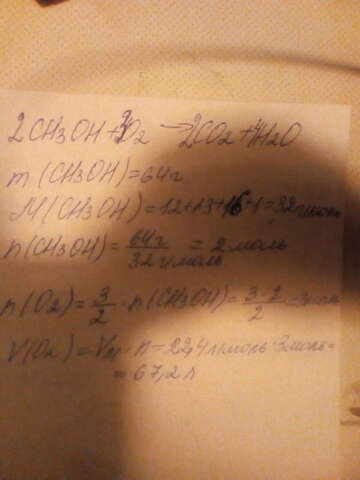 2CH3OH + 3O2 → 2CO2 + 4H2O
m (CH3OH) = 64г
M (CH3OH) = 12+1·3+16+1 = 32г/моль
n (CH3OH) = 64г / 32г/моль = 2 моль
n (O2) = 3/2 · n (CH3OH) = 3·2/2 = 3моль
V (O2) = Vм · n = 22,4 л/моль · 3моль =
= 67,2 л